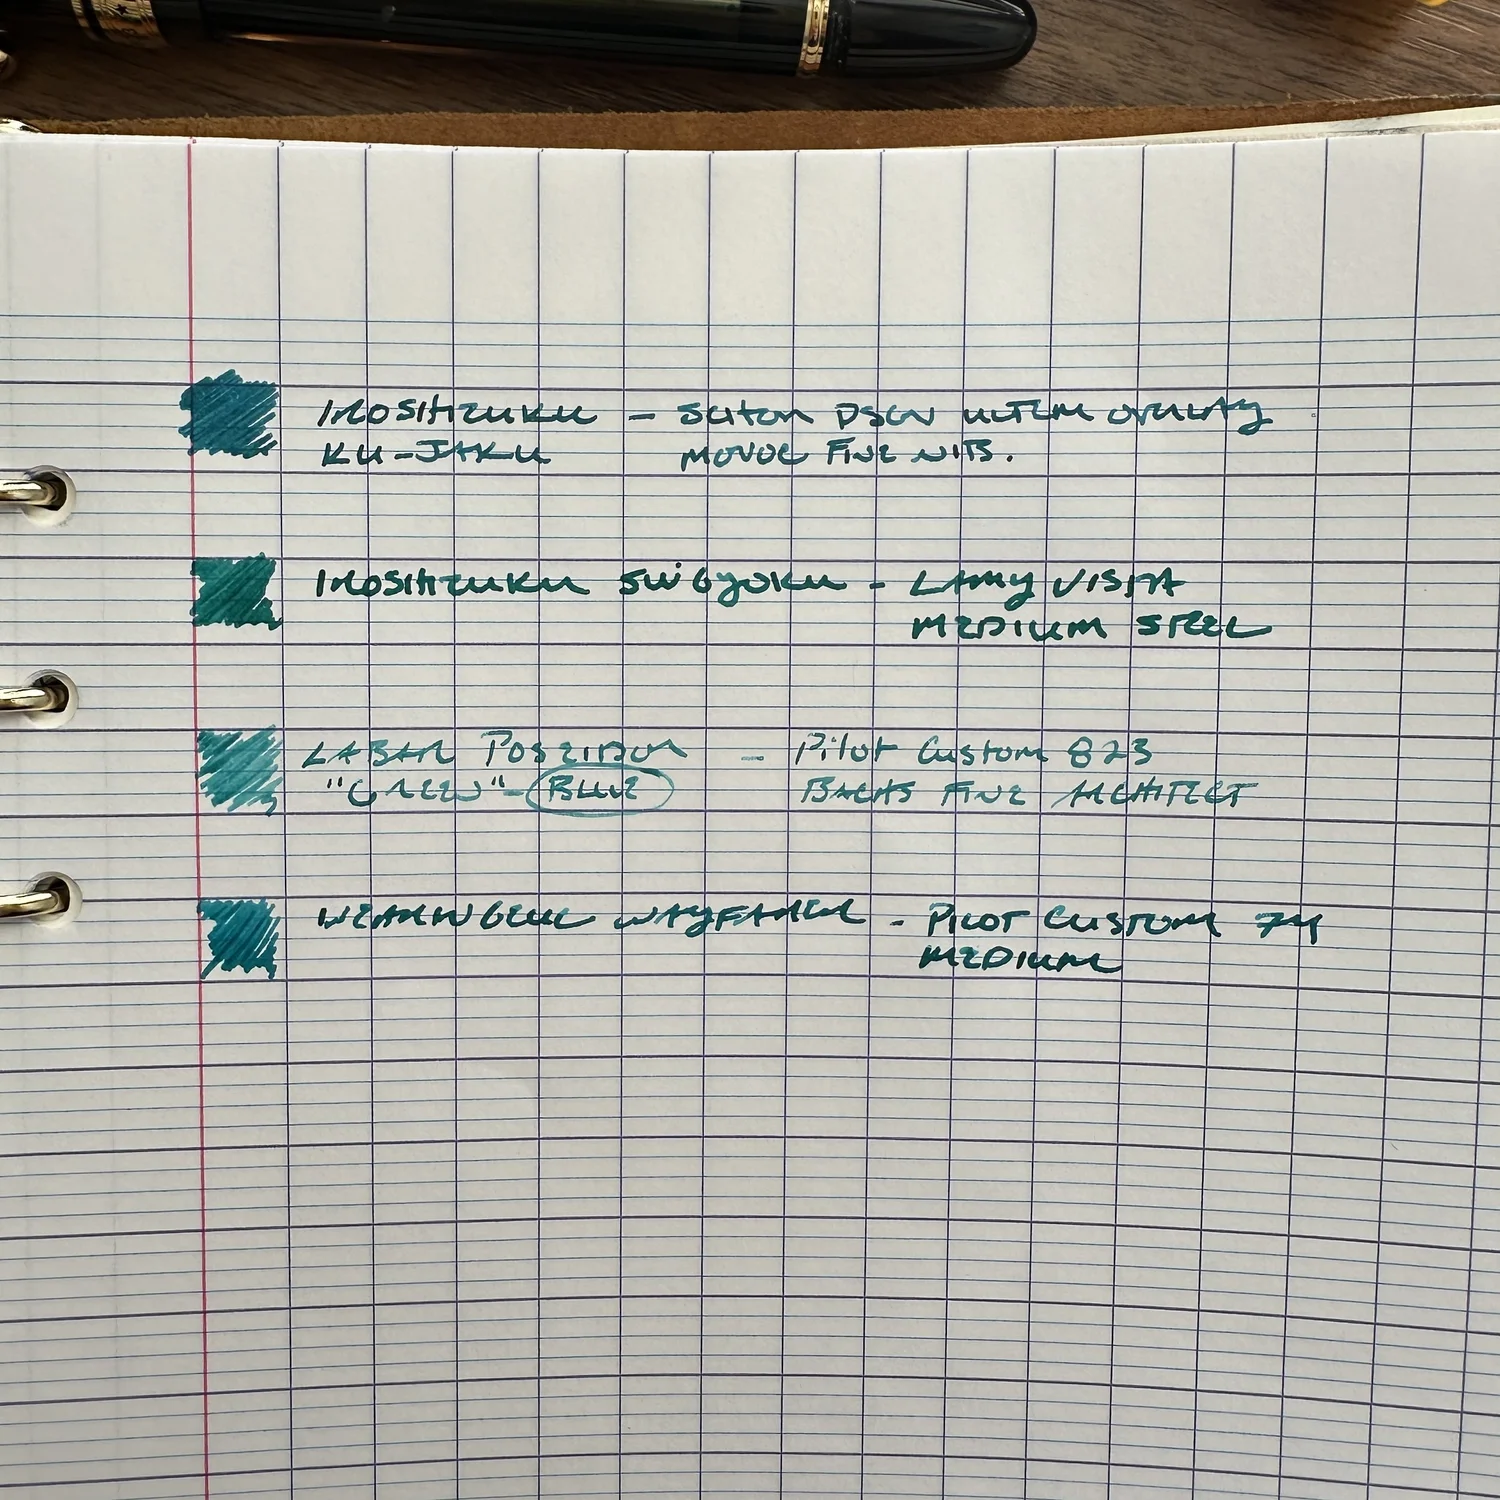 IROSHIZUKU - SCHON DSGN ULTEM OVERLAY
KU-JAKU MONOC FINE NIB.
IROSHIZUKU SUIGYOKU - LAMY VISTA
MEDIUM STEEL
LABAN POSEIDON - Pilot Custom 823
"GREEN" - BLUE BACAS FINE ARCHITECT
WEARINGEUL WAYFARER - PILOT CUSTOM 74
MEDIUM